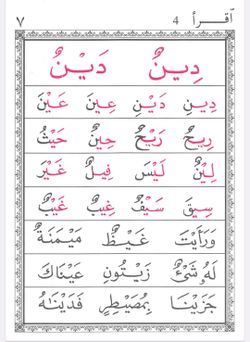 اقرأ 4 ٧
دِينٌ دَيْنٌ
دِينِ دَيْنِ عِينَ عَيْنَ
رِيحٌ رَيْحٌ حِينٌ حَيْثُ
لِيْنٌ لَيْسَ فِيلٌ غَيْرَ
سِيقَ سَيْفٌ غِيبٌ غَيْبٌ
وَرَأَيْتَ غَيْظٌ مَيْمَنَةٌ
لَهُ شَيْءٌ زَيْتُونٍ عَيْنَاكَ
جَزَيْنَا بِمُصَيْطِرٍ فَدَيْنَاهُ